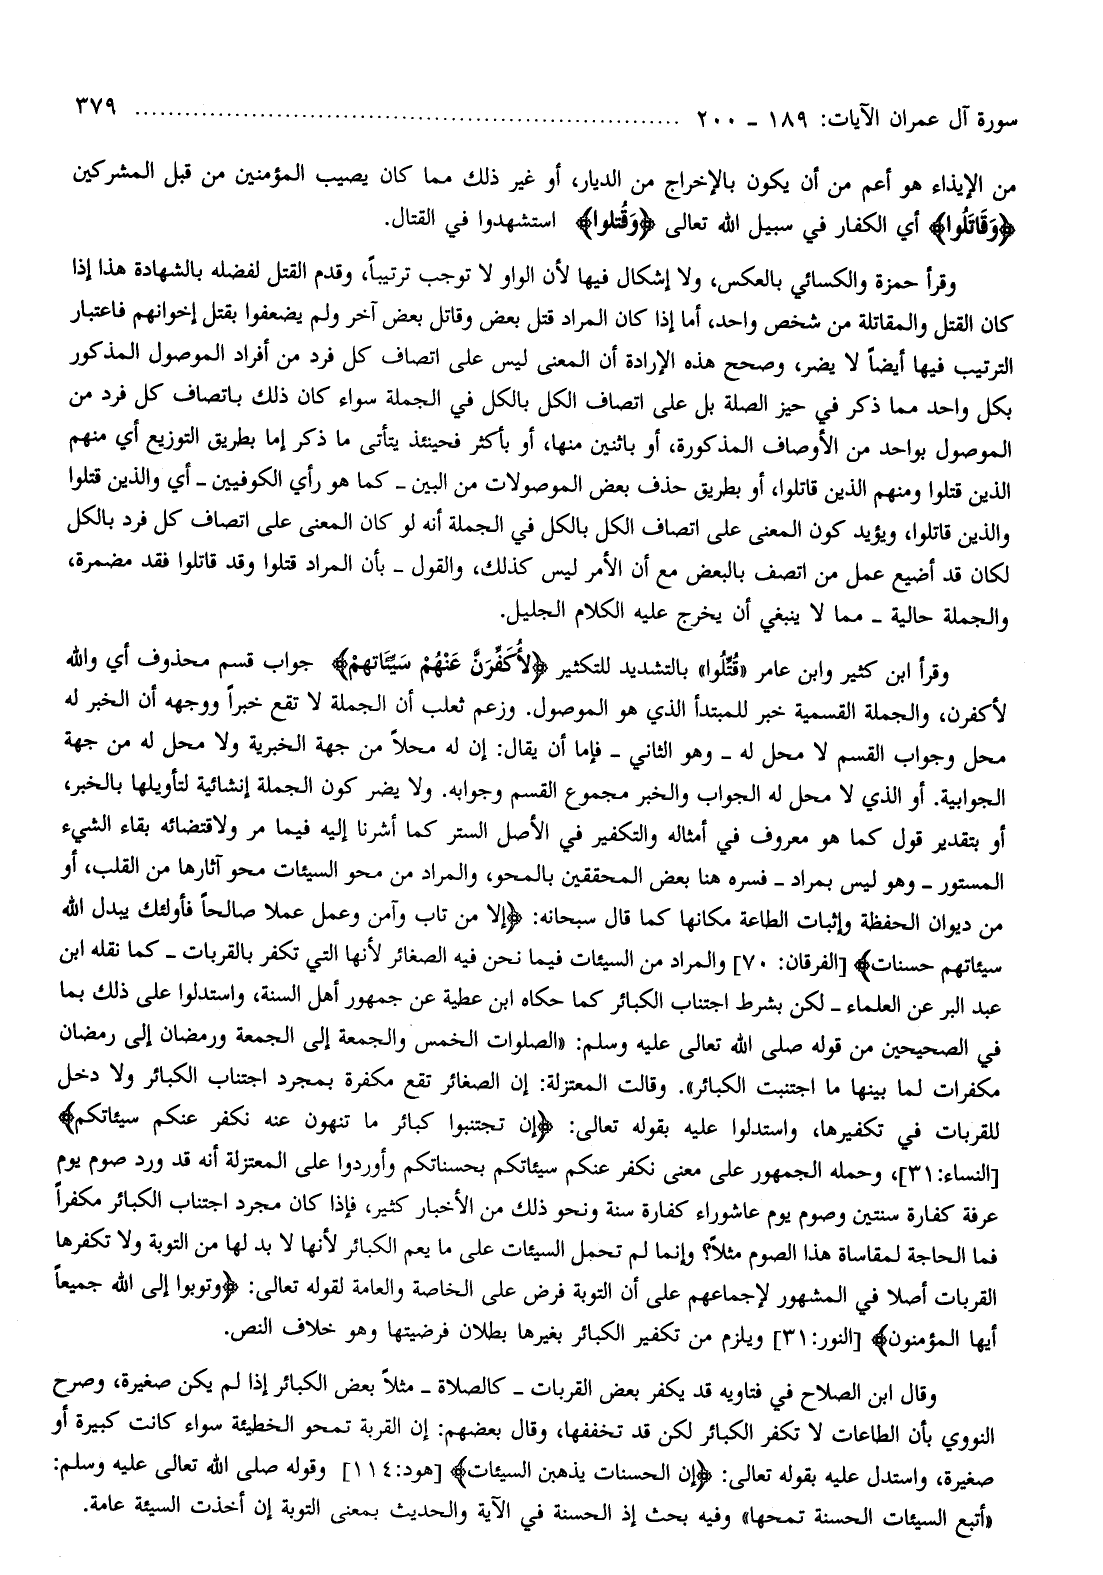 سورة آل عمران الآيات: ١٨٩ ـ ٢٠٠ ................................................................ ٣٧٩
من الإيذاء هو أعم من أن يكون بالإخراج من الديار، أو غير ذلك مما كان يصيب المؤمنين من قبل المشركين
﴿وَقَاتَلُوا﴾ أي الكفار في سبيل الله تعالى ﴿وَقُتلوا﴾ استشهدوا في القتال.
وقرأ حمزة والكسائي بالعكس، ولا إشكال فيها لأن الواو لا توجب ترتيباً، وقدم القتل لفضله بالشهادة هذا إذا
كان القتل والمقاتلة من شخص واحد، أما إذا كان المراد قتل بعض وقاتل بعض آخر ولم يضعفوا بقتل إخوانهم فاعتبار
الترتيب فيها أيضاً لا يضر، وصحح هذه الإرادة أن المعنى ليس على اتصاف كل فرد من أفراد الموصول المذكور
بكل واحد مما ذكر في حيز الصلة بل على اتصاف الكل بالكل في الجملة سواء كان ذلك باتصاف كل فرد من
الموصول بواحد من الأوصاف المذكورة، أو باثنين منها، أو بأكثر فحينئذ يتأتى ما ذكر إما بطريق التوزيع أي منهم
الذين قتلوا ومنهم الذين قاتلوا، أو بطريق حذف بعض الموصولات من البين ـ كما هو رأي الكوفيين ـ أي والذين قتلوا
والذين قاتلوا، ويؤيد كون المعنى على اتصاف الكل بالكل في الجملة أنه لو كان المعنى على اتصاف كل فرد بالكل
لكان قد أضيع عمل من اتصف بالبعض مع أن الأمر ليس كذلك، والقول ـ بأن المراد قتلوا وقد قاتلوا فقد مضمرة،
والجملة حالية ـ مما لا ينبغي أن يخرج عليه الكلام الجليل.
وقرأ ابن كثير وابن عامر «قُتِّلُوا» بالتشديد للتكثير ﴿لأُكَفِّرَنَّ عَنْهُمْ سَيِّئَاتهمْ﴾ جواب قسم محذوف أي والله
لأكفرن، والجملة القسمية خبر للمبتدأ الذي هو الموصول. وزعم ثعلب أن الجملة لا تقع خبراً ووجهه أن الخبر له
محل وجواب القسم لا محل له ـ وهو الثاني ـ فإما أن يقال: إن له محلاً من جهة الخبرية ولا محل له من جهة
الجوابية. أو الذي لا محل له الجواب والخبر مجموع القسم وجوابه. ولا يضر كون الجملة إنشائية لتأويلها بالخبر،
أو بتقدير قول كما هو معروف في أمثاله والتكفير في الأصل الستر كما أشرنا إليه فيما مر ولاقتضائه بقاء الشيء
المستور ـ وهو ليس بمراد ـ فسره هنا بعض المحققين بالمحو، والمراد من محو السيئات محو آثارها من القلب، أو
من ديوان الحفظة وإثبات الطاعة مكانها كما قال سبحانه: ﴿إلا من تاب وآمن وعمل عملا صالحاً فأولئك يبدل الله
سيئاتهم حسنات﴾ [الفرقان: ٧٠] والمراد من السيئات فيما نحن فيه الصغائر لأنها التي تكفر بالقربات ـ كما نقله ابن
عبد البر عن العلماء ـ لكن بشرط اجتناب الكبائر كما حكاه ابن عطية عن جمهور أهل السنة، واستدلوا على ذلك بما
في الصحيحين من قوله صلى الله تعالى عليه وسلم: «الصلوات الخمس والجمعة إلى الجمعة ورمضان إلى رمضان
مكفرات لما بينها ما اجتنبت الكبائر». وقالت المعتزلة: إن الصغائر تقع مكفرة بمجرد اجتناب الكبائر ولا دخل
للقربات في تكفيرها، واستدلوا عليه بقوله تعالى: ﴿إن تجتنبوا كبائر ما تنهون عنه نكفر عنكم سيئاتكم﴾
[النساء:٣١]، وحمله الجمهور على معنى نكفر عنكم سيئاتكم بحسناتكم وأوردوا على المعتزلة أنه قد ورد صوم يوم
عرفة كفارة سنتين وصوم يوم عاشوراء كفارة سنة ونحو ذلك من الأخبار كثير، فإذا كان مجرد اجتناب الكبائر مكفراً
فما الحاجة لمقاساة هذا الصوم مثلاً؟ وإنما لم تحمل السيئات على ما يعم الكبائر لأنها لا بد لها من التوبة ولا تكفرها
القربات أصلا في المشهور لإجماعهم على أن التوبة فرض على الخاصة والعامة لقوله تعالى: ﴿وتوبوا إلى الله جميعاً
أيها المؤمنون﴾ [النور:٣١] ويلزم من تكفير الكبائر بغيرها بطلان فرضيتها وهو خلاف النص.
وقال ابن الصلاح في فتاويه قد يكفر بعض القربات ـ كالصلاة ـ مثلاً بعض الكبائر إذا لم يكن صغيرة، وصرح
النووي بأن الطاعات لا تكفر الكبائر لكن قد تخففها، وقال بعضهم: إن القربة تمحو الخطيئة سواء كانت كبيرة أو
صغيرة، واستدل عليه بقوله تعالى: ﴿إن الحسنات يذهبن السيئات﴾ [هود:١١٤] وقوله صلى الله تعالى عليه وسلم:
«أتبع السيئات الحسنة تمحها» وفيه بحث إذ الحسنة في الآية والحديث بمعنى التوبة إن أخذت السيئة عامة.